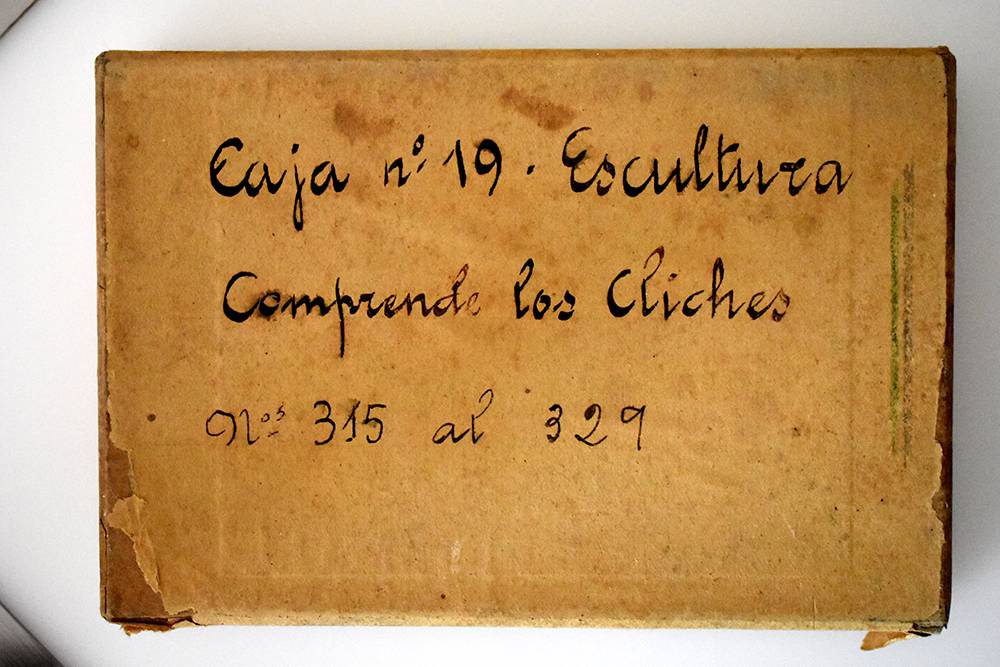 Caja nº 19. Escultura
Comprende los Cliches
Nos 315 al 329